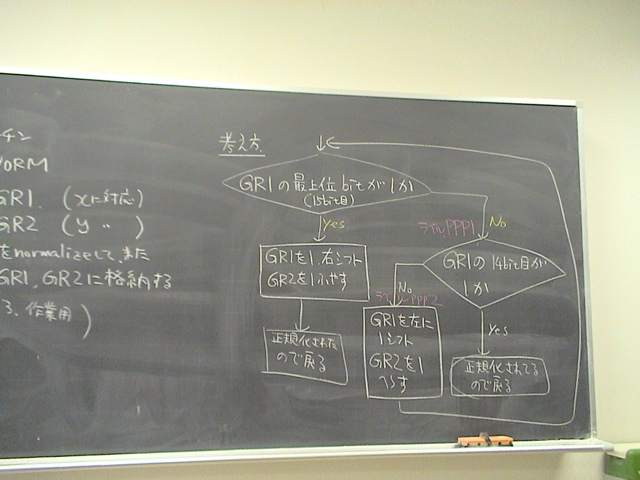 チン
NORM
GR1. (xに対応)
GR2 (y 〃 )
をnormalizeして、また
GR1, GR2に格納する
3. 作業用)
考え方
GR1の最上位bitが1か
(15bit目)
Yes
No
ラベルPPP1
GR1を1,右シフト
GR2を1ふやす
正規化された
ので戻る
GR1の14bit目が
1か
No
ラベルPPP2
GR1を左に
1シフト
GR2を1
へらす
Yes
正規化されてる
ので戻る